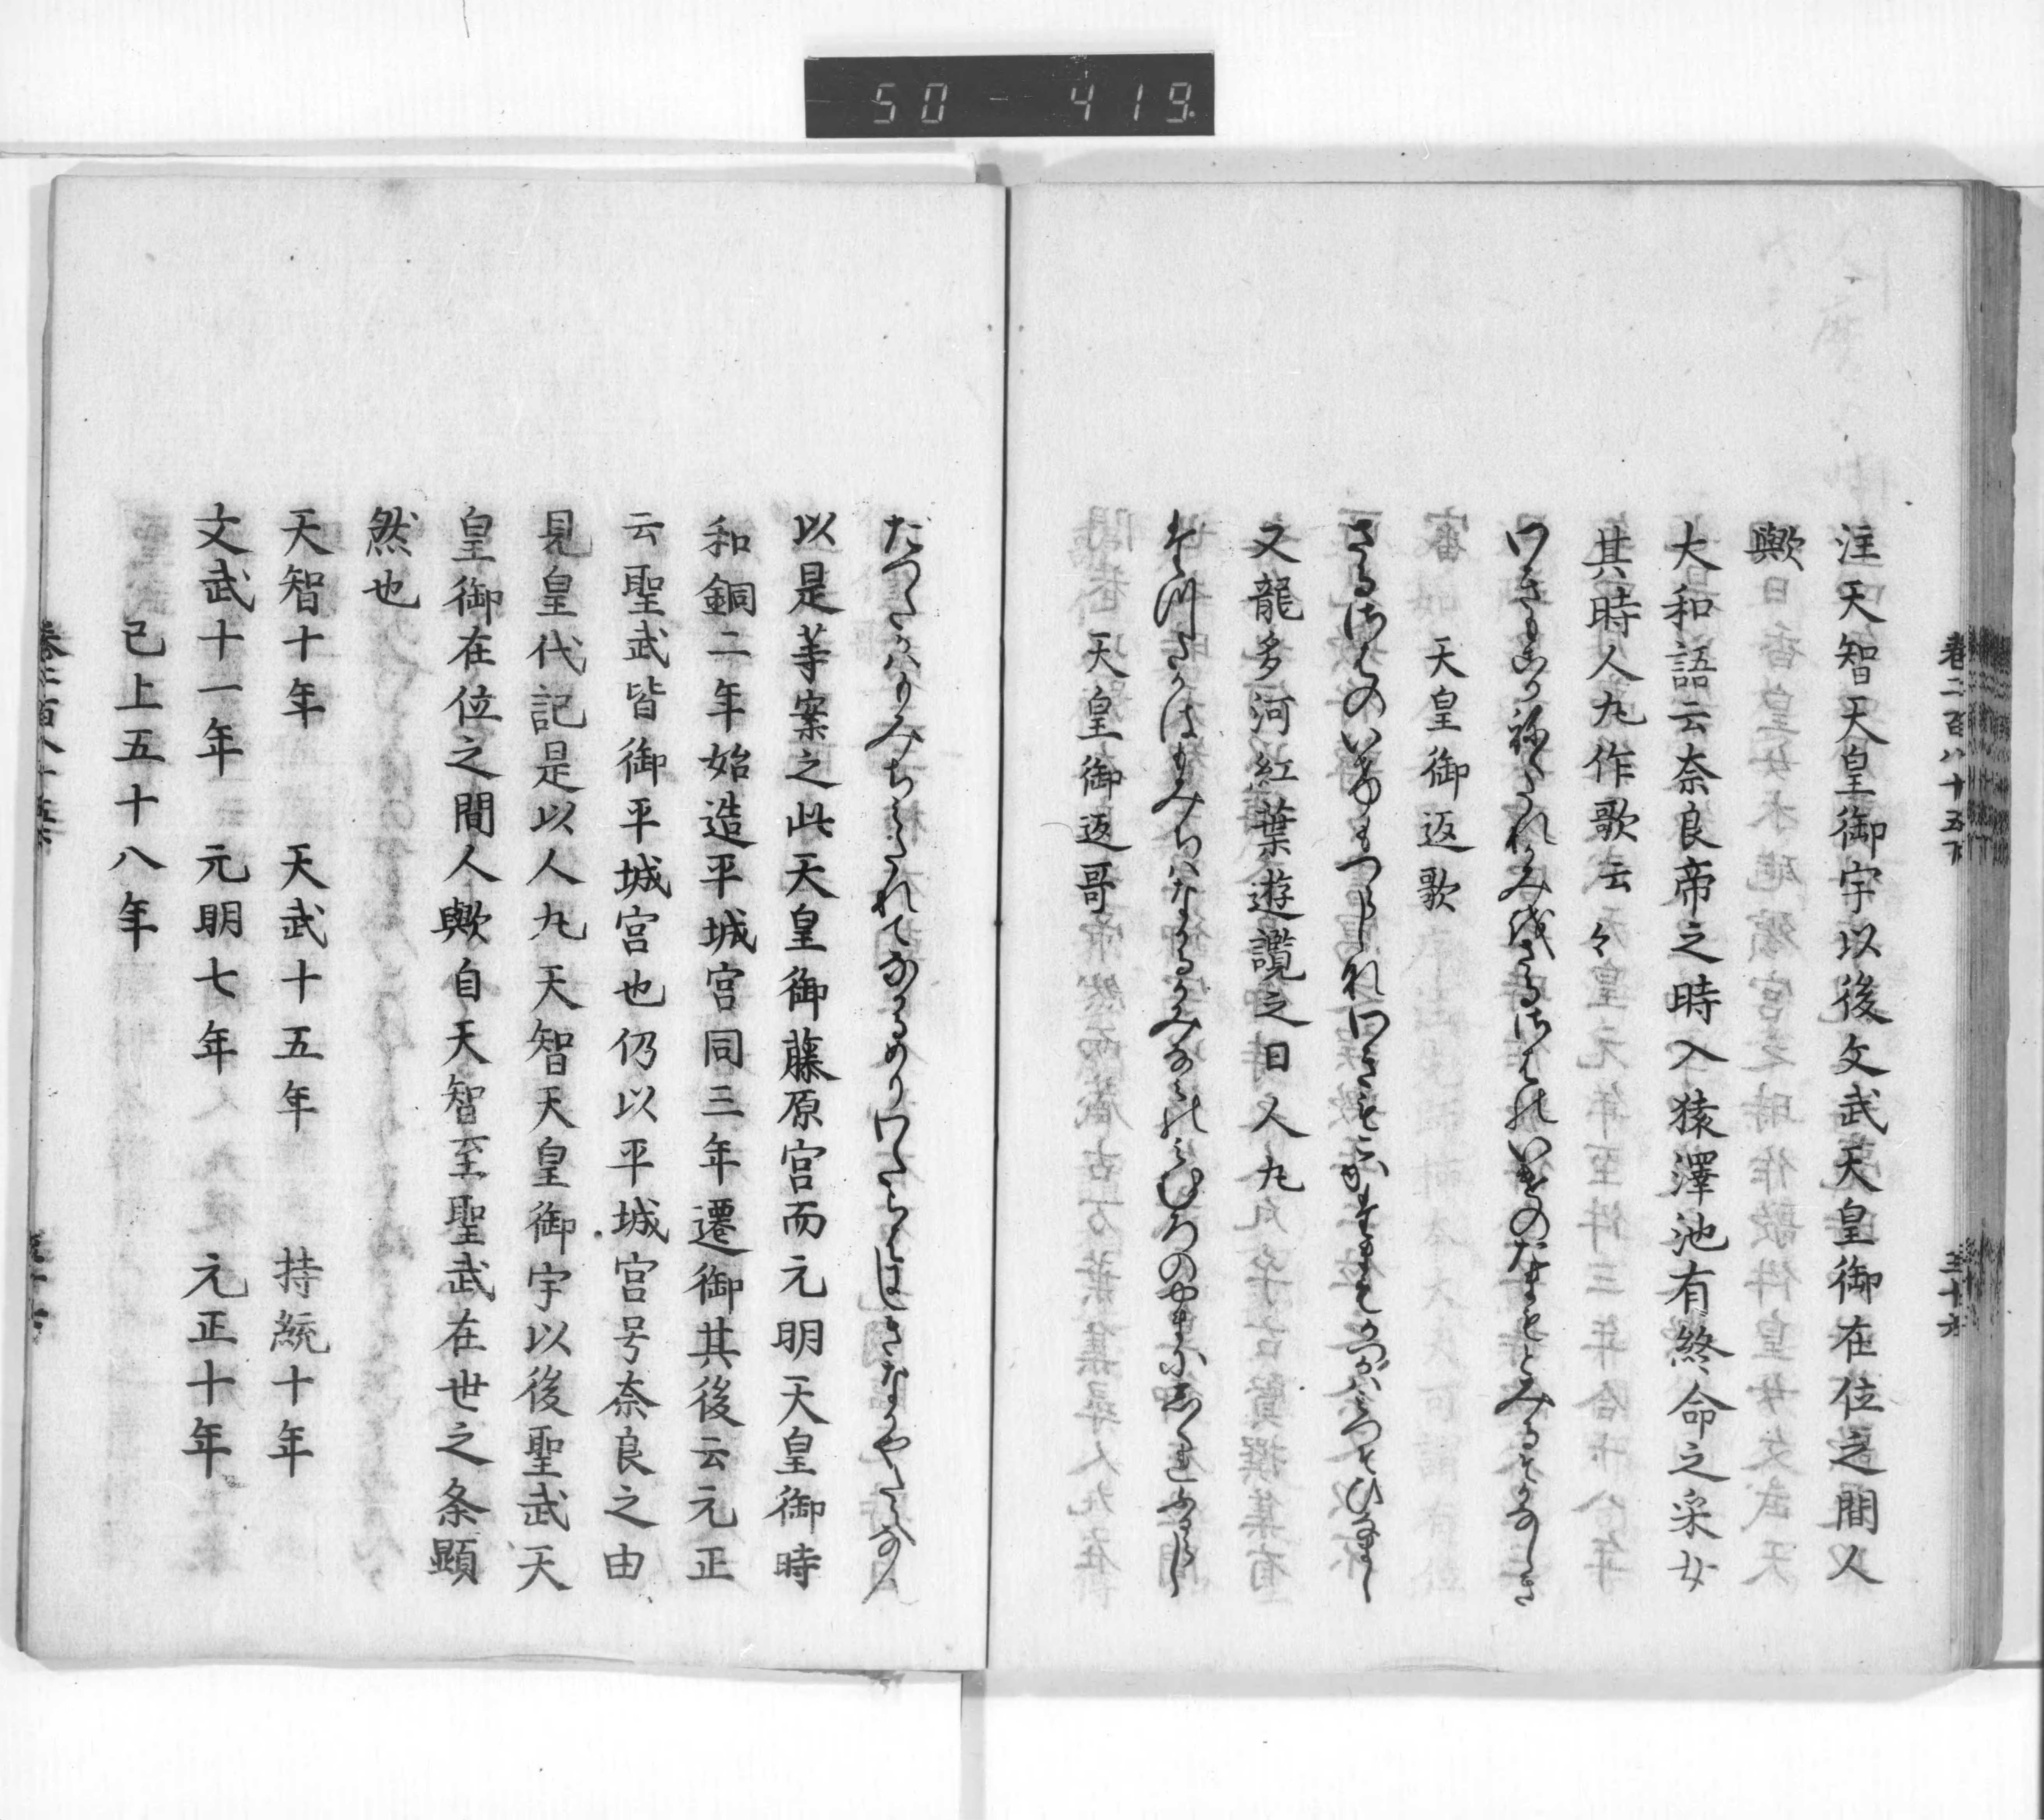 50-419
巻二百八十五下
三十六
注天智天皇御宇以後文武天皇御在位之間人
歟
大和語云奈良帝之時入猿澤池有終命之采女
其時人丸作歌云々
わきもこかねくたれかみをさるさはのいけのたまもとみるそかなしき
天皇御返歌
さるさはのいけもつらしなわきもこかたまもかつかはみつそひなまし
又龍多河紅葉遊讌之日人丸
たつたかはもみちはなかるかみなみのみむろのやまにしくれふるらし
天皇御返哥
たつたかはもみちみたれてなかるめりわたらはにしきなかやたえなん
以是等案之此天皇御藤原宮而元明天皇御時
和銅二年始造平城宮同三年遷御其後云元正
云聖武皆御平城宮也仍以平城宮号奈良之由
見皇代記是以人丸天智天皇御宇以後聖武天
皇御在位之間人歟自天智至聖武在世之条顕
然也
天智十年　天武十五年　持統十年
文武十一年　元明七年　元正十年
已上五十八年